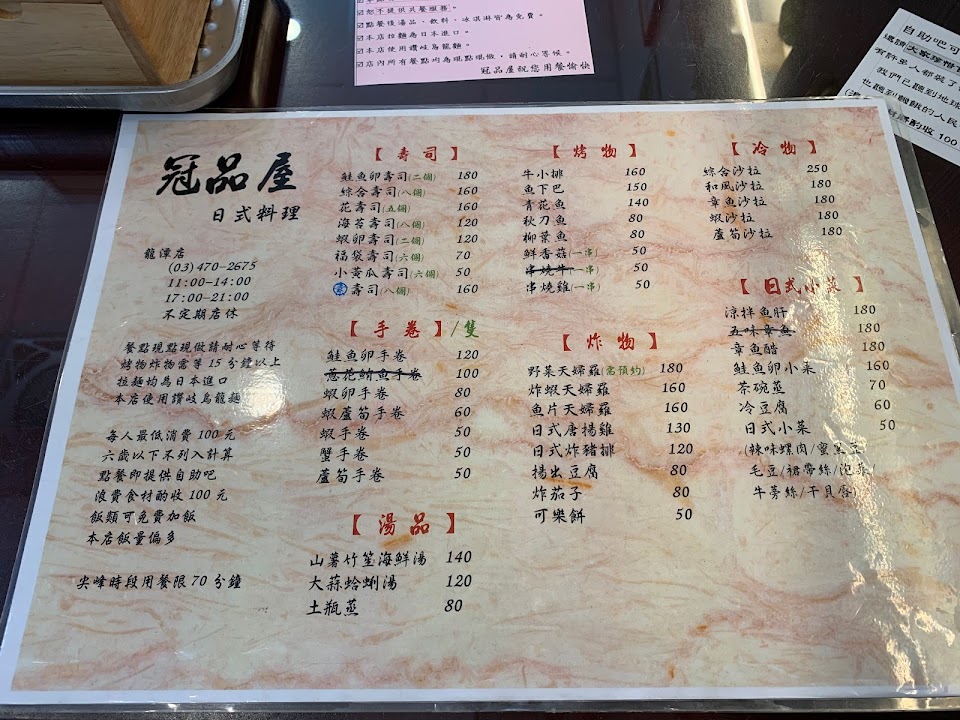 ☑恕不提供共餐服務。
☑點餐後湯品、飲料、冰淇淋皆為免費。
☑本店拉麵為日本進口。
☑本店使用讚岐烏龍麵。
☑店內所有餐點均為現點現做,請耐心等候。
冠品屋祝您用餐愉快
自助吧可
還請大家珍惜
有許多人都裝了
我們已聽到地球
也聽到飢餓的人民
酌收 100
冠品屋
日式料理
龍潭店
(03)470-2675
11:00-14:00
17:00-21:00
不定期店休
餐點現點現做請耐心等待
烤物炸物需等 15 分鐘以上
拉麵均為日本進口
本店使用讚岐烏龍麵
每人最低消費 100 元
六歲以下不列入計算
點餐即提供自助吧
浪費食材酌收 100 元
飯類可免費加飯
本店飯量偏多
尖峰時段用餐限 70 分鐘
【 壽 司 】
鮭魚卵壽司(二個) 180
綜合壽司(八個) 160
花壽司(五個) 160
海苔壽司(八個) 120
蝦卵壽司(二個) 120
福袋壽司(六個) 70
小黃瓜壽司(六個) 50
壽司(八個) 160
【 手 卷 】/隻
鮭魚卵手卷 120
蔥花鮪魚手卷 100
蝦卵手卷 80
蝦蘆筍手卷 60
蝦手卷 50
蟹手卷 50
蘆筍手卷 50
【 湯 品 】
山薯竹笙海鮮湯 140
大蒜蛤蜊湯 120
土瓶蒸 80
【 烤 物 】
牛小排 160
魚下巴 150
青花魚 140
秋刀魚 80
柳葉魚 80
鮮香菇(一串) 50
串燒牛(一串) 50
串燒雞(一串) 50
【 炸 物 】
野菜天婦羅(需預約) 180
炸蝦天婦羅 160
魚片天婦羅 160
日式唐揚雞 130
日式炸豬排 120
揚出豆腐 80
炸茄子 80
可樂餅 50
【 冷 物 】
綜合沙拉 250
和風沙拉 180
章魚沙拉 180
蝦沙拉 180
蘆筍沙拉 180
【 日式小菜 】
涼拌魚肝 180
五味章魚 180
章魚醋 180
鮭魚卵小菜 160
茶碗蒸 70
冷豆腐 60
日式小菜 50
(辣味螺肉/蜜黑豆/
毛豆/裙帶絲/泡菜/
牛蒡絲/干貝唇)